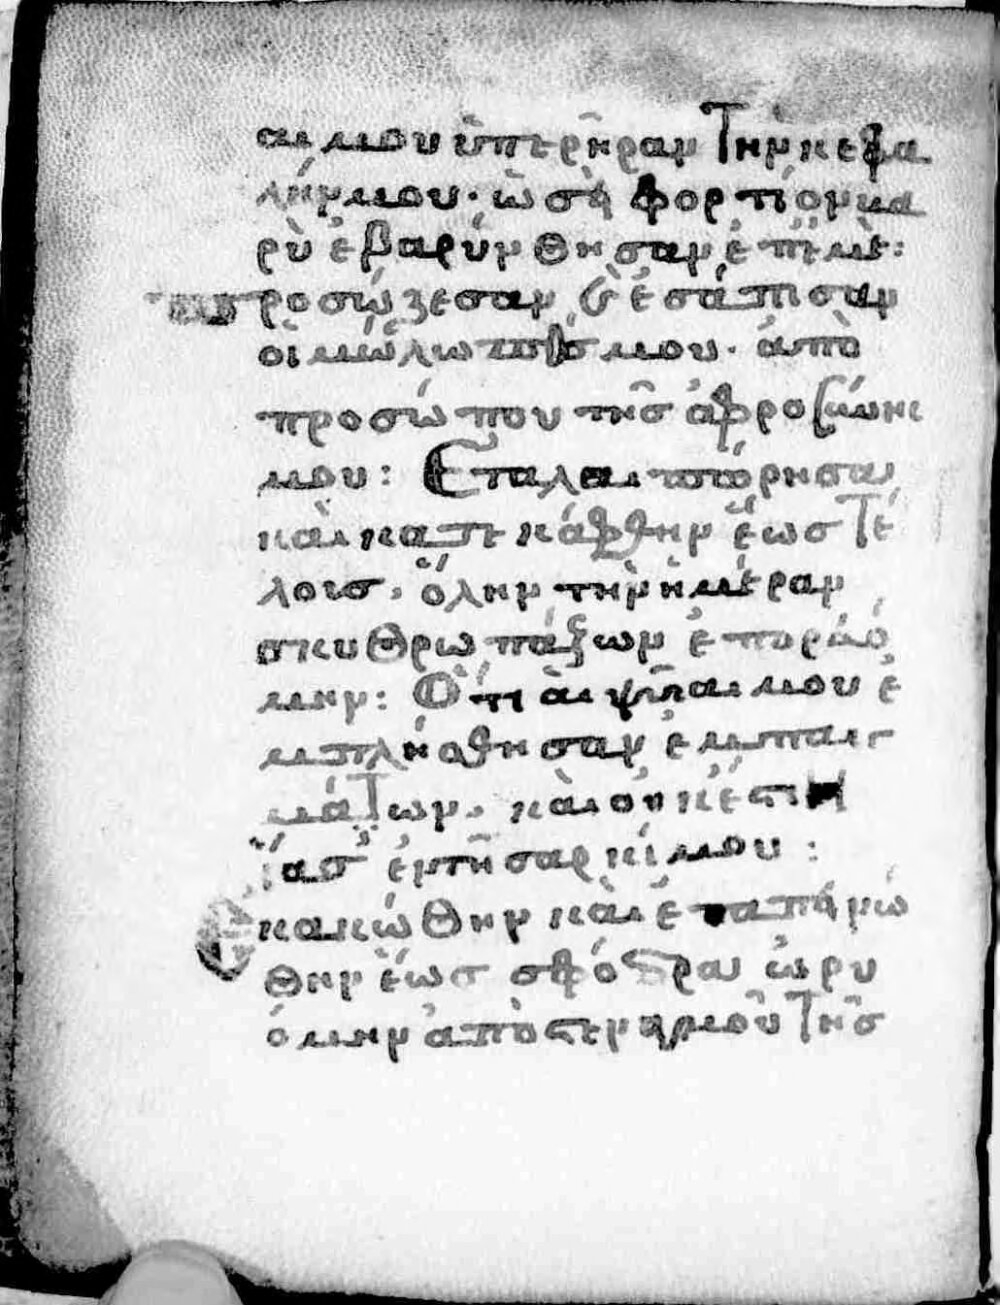 αι μου ὑπερῆραν τὴν κεφα
λήν μου· ὡσῆ φορτίον βα
ρὺ ἐβαρύνθησαν ἐπ ἐμὲ:
προσώζεσαν ϗ ἐσάπισαν
οἱ μώλωπές μου· ἀπὸ
προσώπου τῆσ ἀφροσύνης
μου: Εταλαιπώρησα
καὶ κατεκάφθην ἕωσ τέ
λουσ, ὅλην τὴν ἡμέραν
σκυθρωπάζων ἐπορευό
μην: Ὅτι ἁι ψύαι μου ἐ
μπλήσθησαν ἐμπαιγ
μάτων, καὶ οὐκ ἔστιν
ἴασ ἐν τῆ σαρκί μου:
Εκακώθην καὶ ἐταπεινώ
θην ἕωσ σφόδρα ὠρυ
όμην ἀπὸ στεναγμοῦ τῆσ